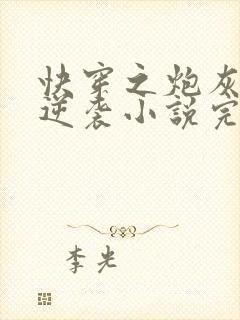 快穿之炮灰
逆袭小説完
李光